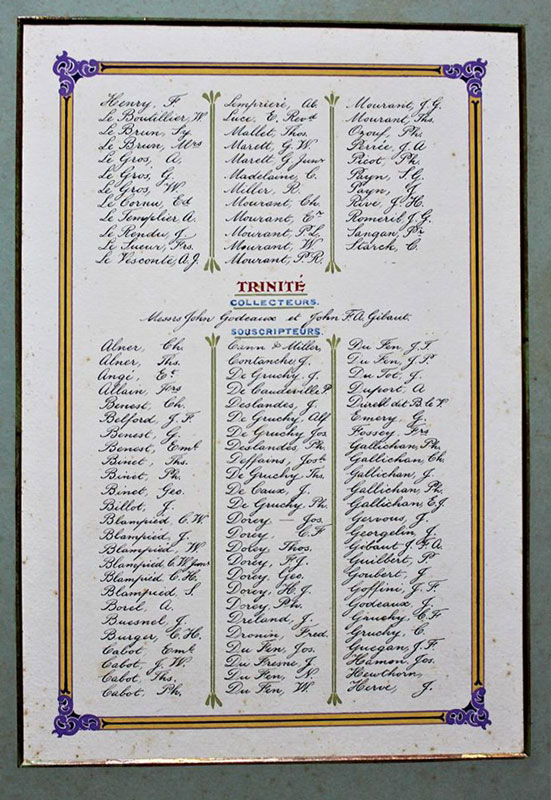 Henry, F
Le Boutillier, W
Le Brun, Sy.
Le Brun, Mrs
Le Gros, A.
Le Gros, G.
Le Gros, W.
Le Cornu, Ed
Le Templier A.
Le Rendu, J
Le Sueur, Frs.
Le Vesconte, A.J.
Lempriere, Ab.
Luce, E. Revd
Mallet, Thos.
Marett, G.W.
Marett G. Junr
Madelaine, C.
Miller, R.
Mourant, Ch.
Mourant, Er
Mourant, P.L.
Mourant, W
Mourant, P.R.
Mourant, J.G.
Mourant, Ths.
Ozouf, Ph.
Perrée, J.A
Picot, Ph.
Payn, S.G.
Payn, J.
Rive, J.H.
Romeril, J.G.
Sangan, Pr
Starck, C.
TRINITÉ
COLLECTEURS.
Messrs John Godeaux et John F.A. Gibaut.
SOUSCRIPTEURS.
Alner, Ch.
Alner, Ths.
Ange, Er
Allain, Frs
Benest, Ch.
Belford, J.F.
Benest, G.
Benest, Emle
Binet, Ths.
Binet, Ph.
Binet, Geo.
Billot, J.
Blampied, C.W
Blampied, J.
Blampied, W
Blampied C.W. Junr
Blampied C.H.
Blampied, S.
Borel, A.
Buesnel, J.
Burger, C.H.
Cabot, Emle
Cabot, J.W.
Cabot, Ths.
Cabot, Ph.
Cann & Miller,
Contanche, J.
De Gruchy, J.
De Caudeville P.
Deslandes, J.
De Gruchy, Alf
De Gruchy Jos.
Deslandes, Ph.
Deffains, Josh
De Gruchy, Ths.
De Caux, J.
De Gruchy, Ph.
Dorey — Jos.
Dorey, C.F
Dolby, Thos.
Dorey, F.J.
Dorey, Geo.
Dorey, H.J.
Dorey, Ph.
Dreland, J.
Dronin, Fred.
Du Feu, Jos.
Du Fresne, J.
Du Feu, N.
Du Feu, W.
Du Feu, J.T.
Du Feu, J. Pr
Du Tot, J.
Duport, A
Direll dit B. le V.
Emery, G.
Fossey, Frs
Gallichan, Ph.
Gallichan, Ch.
Gallichan, J.
Gallichan, Ph.
Gallichan, E.J.
Gervous, J.
Georgelin, J.
Gibaut J.F.A.
Guilbert, Pr
Goubert, J.
Goffini, J.F.
Godeaux, J.
Gruchy, C.F
Gruchy, C.
Guegan, J.F.
Hamon, Jos.
Hewthorn,
Herve, J.